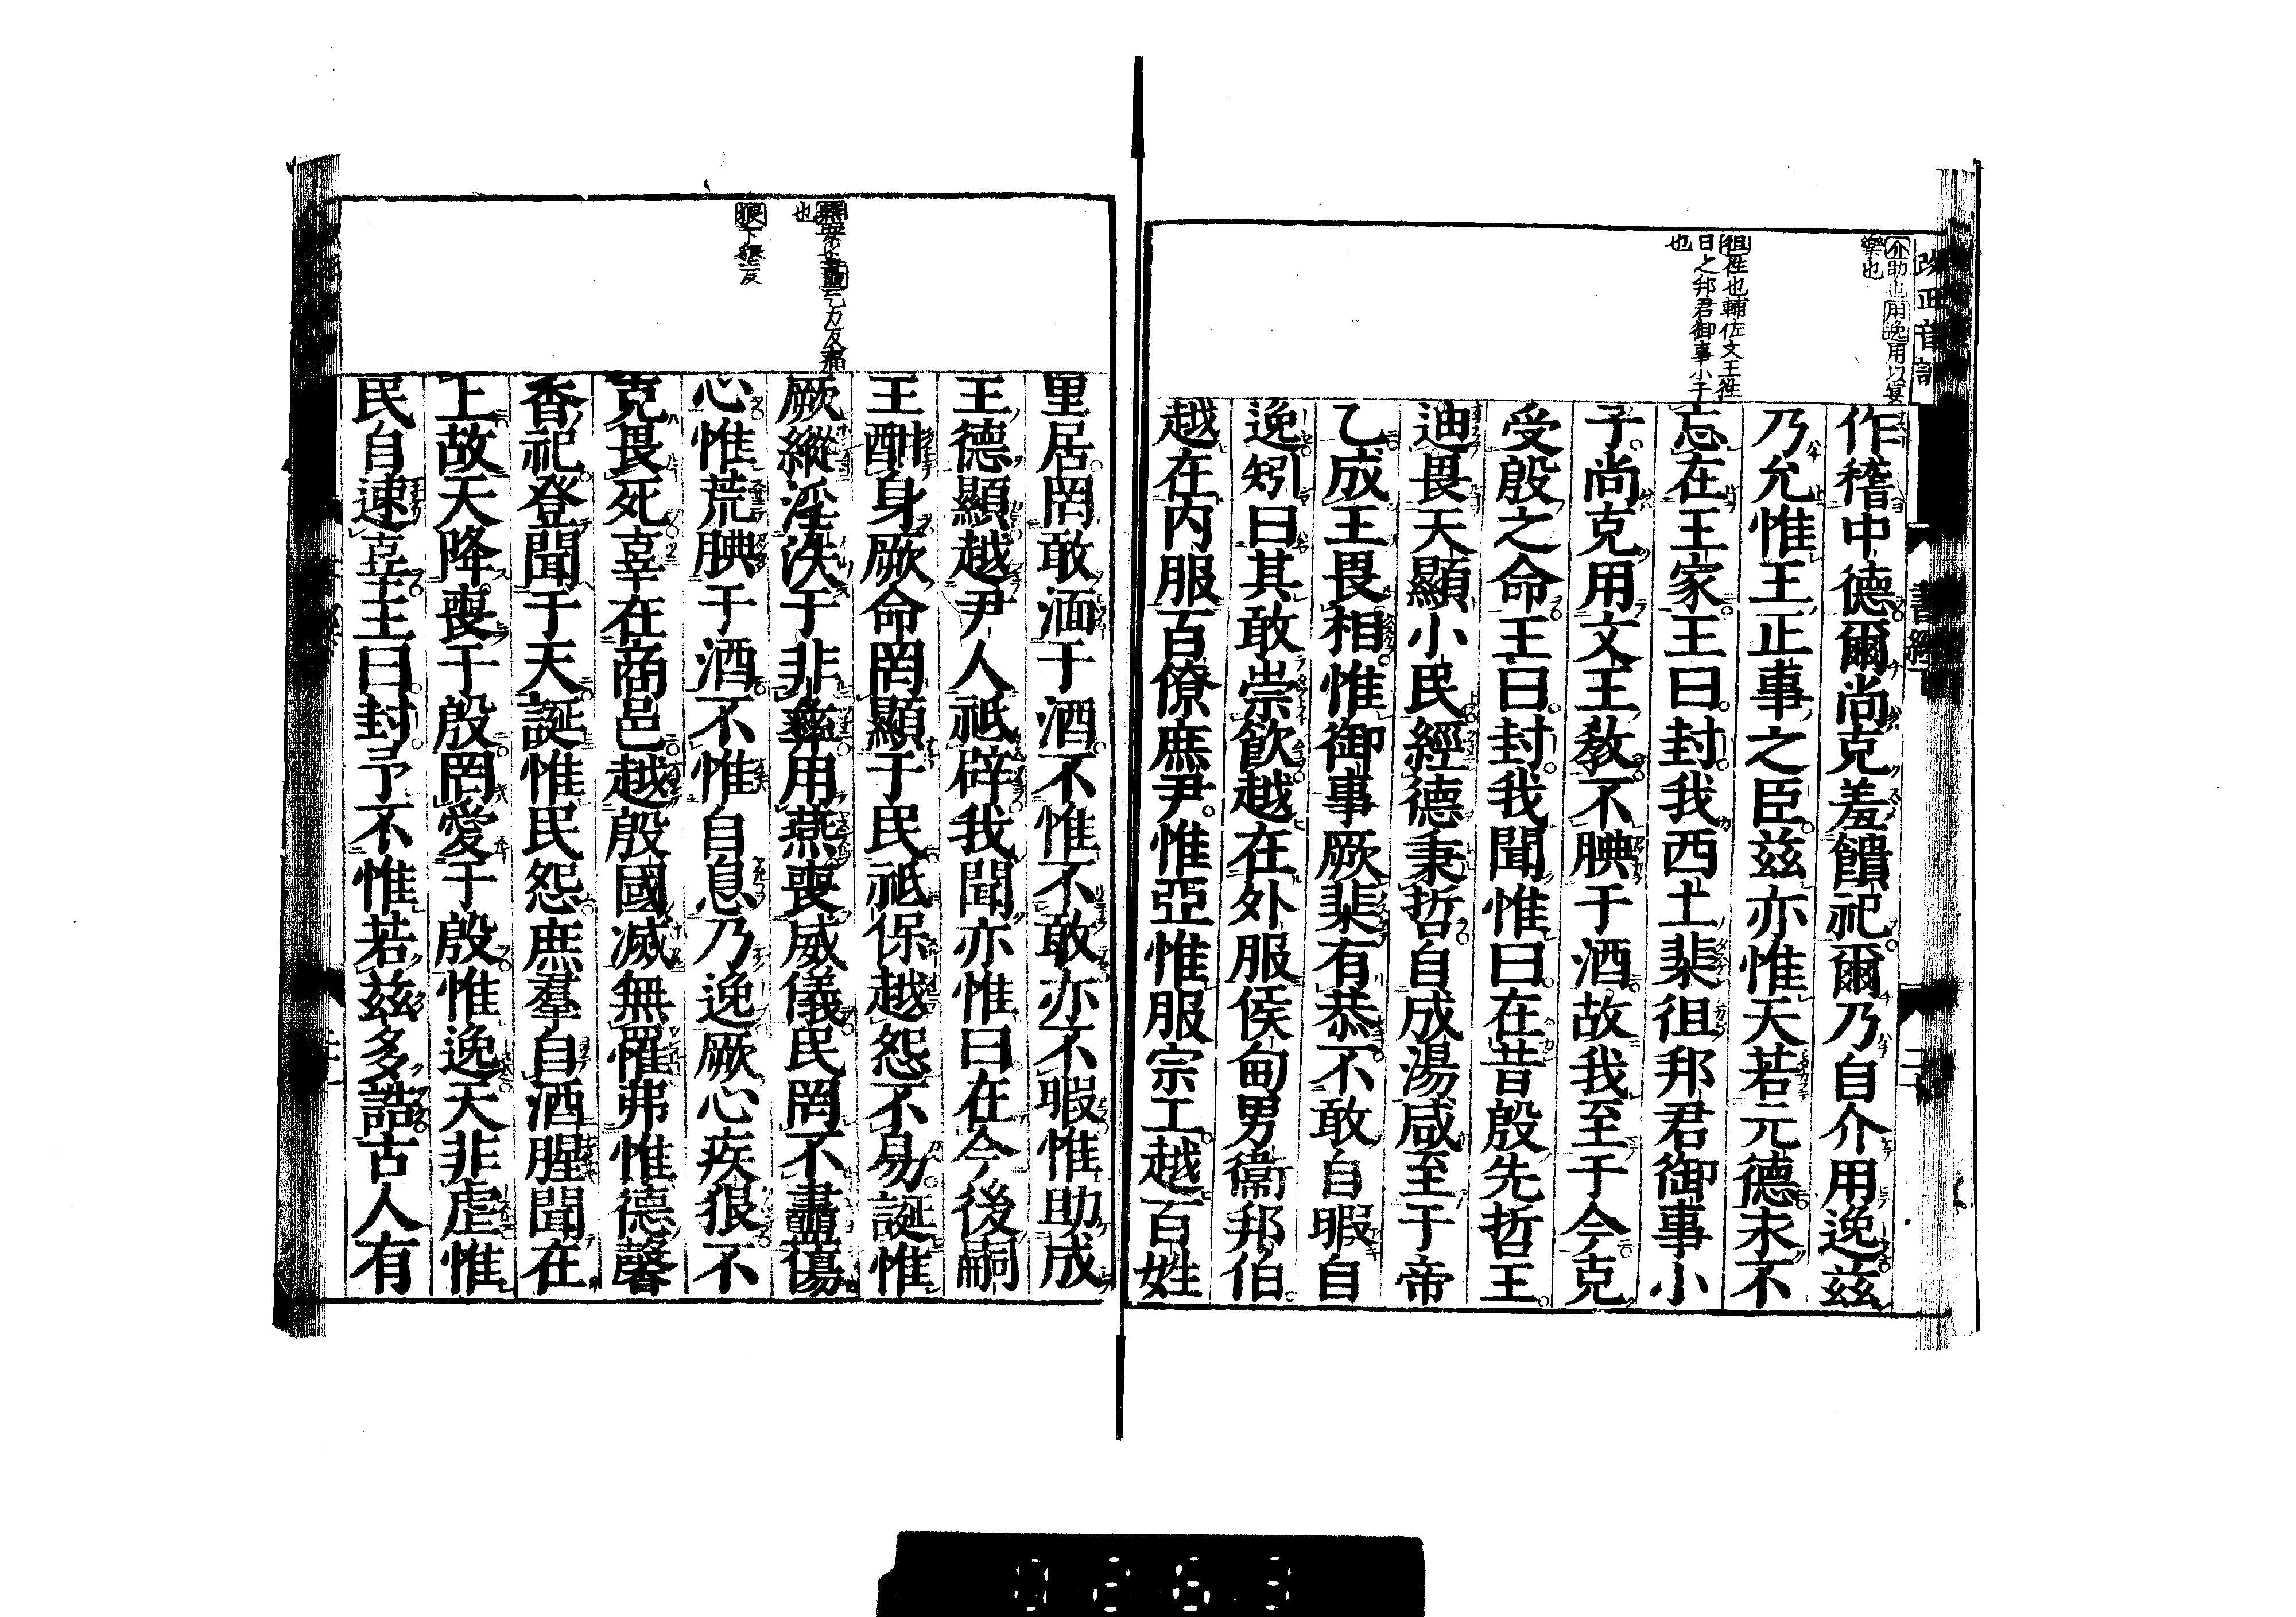 改正音訓
書經下
介助也用逸用以宴
樂也
徂徃也輔佐文王徃
日之邦君御事小子
也
作稽中德爾尚克羞饋祀爾乃自介用逸茲
乃允惟王正事之臣茲亦惟天若元德永不
忘在王家王曰封我西土棐徂邦君御事小
子尚克用文王教不腆于酒故我至于今克
受殷之命王曰封我聞惟曰在昔殷先哲王
迪畏天顯小民經德秉哲自成湯咸至于帝
乙成王畏相惟御事厥棐有恭不敢自暇自
逸矧曰其敢崇飲越在外服侯甸男衞邦伯
越在内服百僚庶尹惟亞惟服宗工越百姓
也
狠下懇反
里居罔敢湎于酒不惟不敢亦不暇惟助成
王德顯越尹人祗辟我聞亦惟曰在今後嗣
王酣身厥命罔顯于民祗保越怨不易誕惟
厥縱淫泆于非彝用燕喪威儀民罔不衋傷
心惟荒腆于酒不惟自息乃逸厥心疾狠不
克畏死辜在商邑越殷國滅無罹弗惟德馨
香祀登聞于天誕惟民怨庶羣自酒腥聞在
上故天降喪于殷罔愛于殷惟逸天非虐惟
民自速辜王曰封予不惟若茲多誥古人有
0263